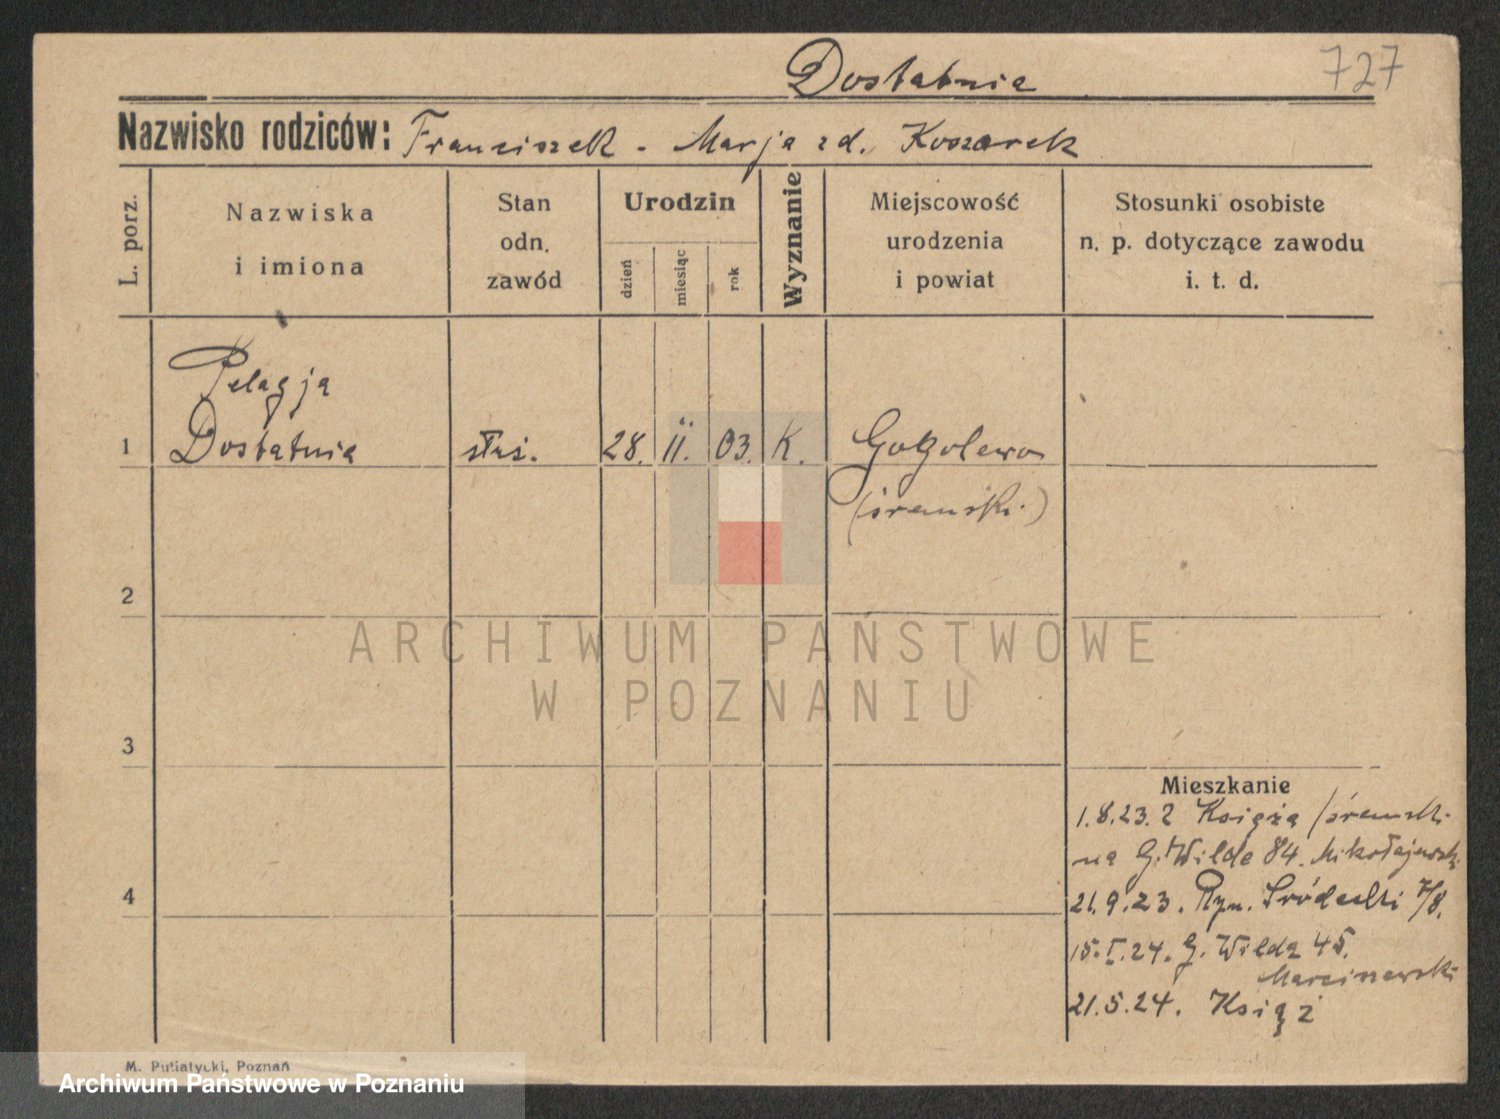 727
Dostatnia
Nazwisko rodziców: Franciszek - Marja zd. Koszarek
L. porz.
Nazwiska
i imiona
Stan
odn.
zawód
Urodzin
dzień
miesiąc
rok
Wyznanie
Miejscowość
urodzenia
i powiat
Stosunki osobiste
n. p. dotyczące zawodu
i. t. d.
Pelagja
1 Dostatnia służ. 28. II. 03. K. Gogolewo
(śremski.)
2
ARCHIWUM PAŃSTWOWE
W POZNANIU
3
Mieszkanie
1.8.23. z Książa /śremski.
na G. Wilde 84. Mikołajewsk
4
21.9.23. Ryn. Śródecki 7/8.
15.I.24. G. Wilda 45.
Marciszewski
21.5.24. Książ
M. Putiatycki, Poznań
Archiwum Państwowe w Poznaniu